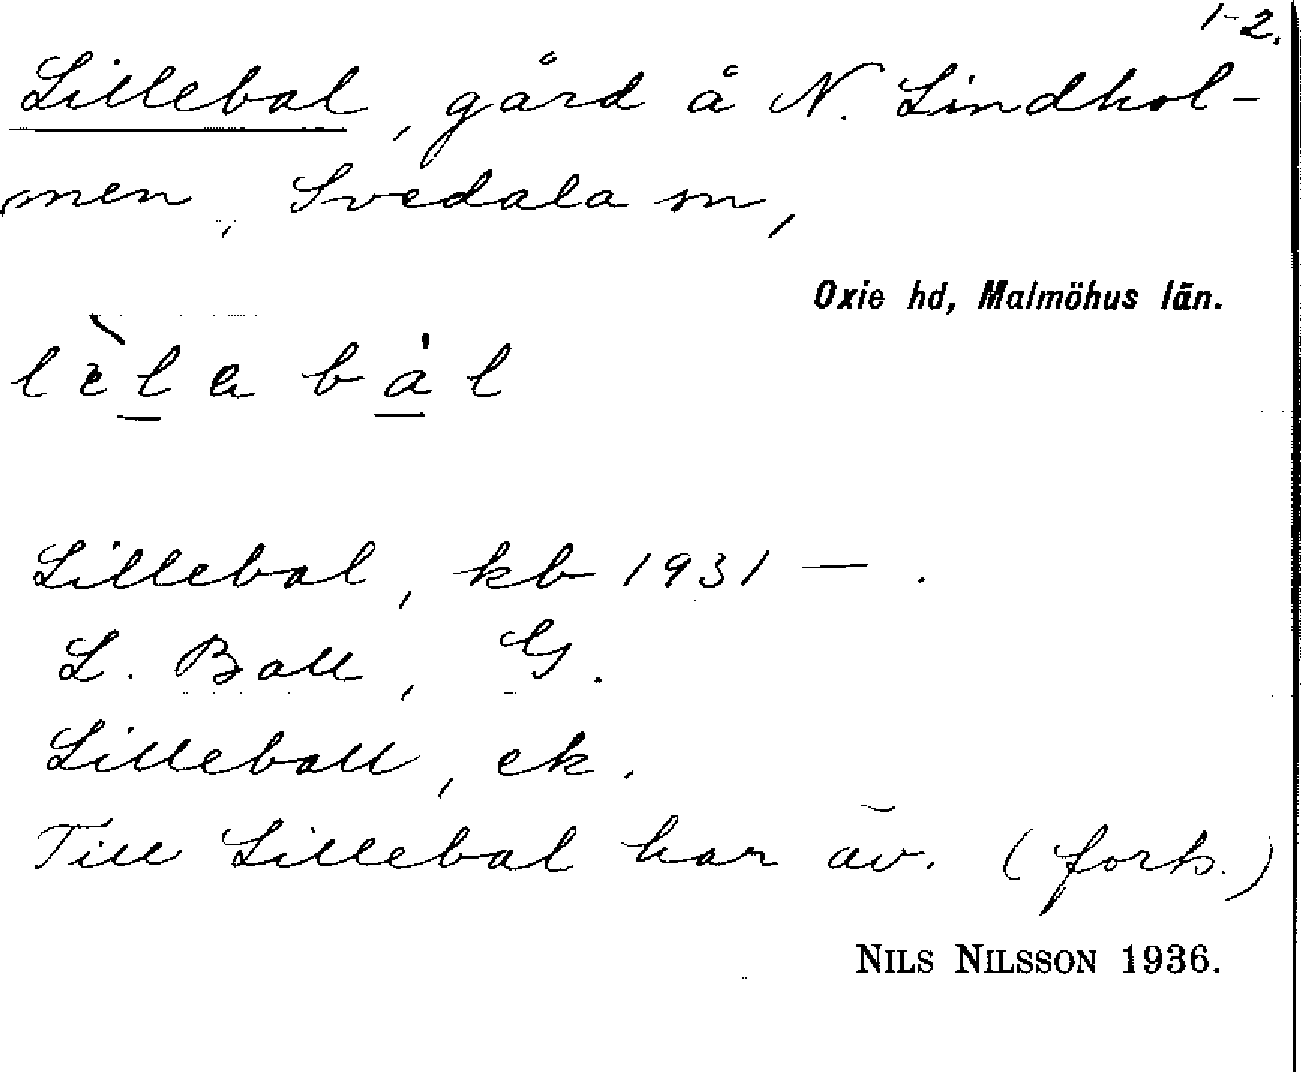 1-2.
Lillebal, gård å N. Lindhol-
men, Svedala sn,
Oxie hd, Malmöhus län.
lèla bàl
Lillebal, kb 1931 — .
L. Ball, G.
Lilleball, ek.
Till Lillebal har av. (forts.)
NILS NILSSON 1936.